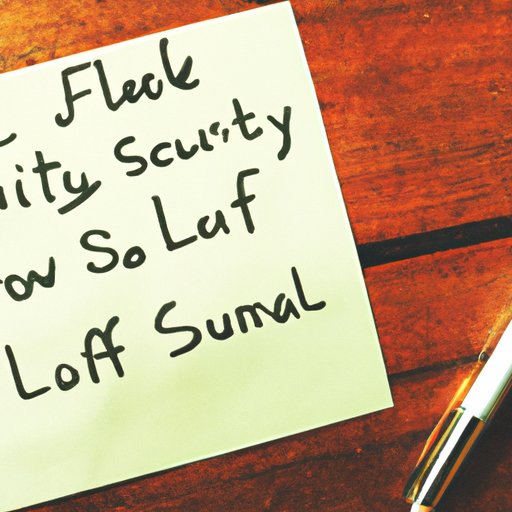 Fleck
ity Scusty
ow So Laf
Loff Sumal